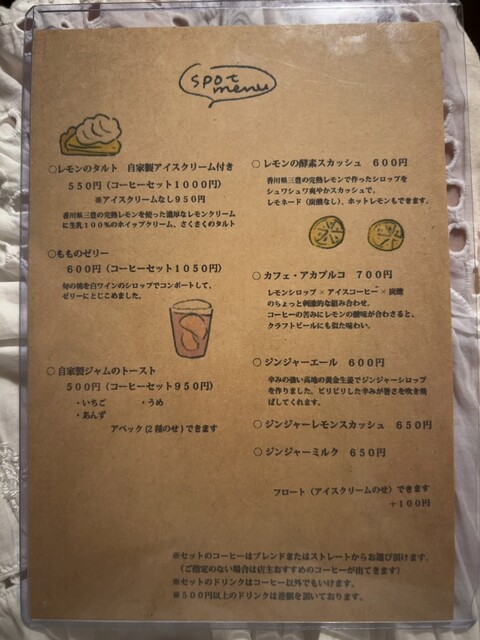 spot
menu
○レモンのタルト 自家製アイスクリーム付き
550円（コーヒーセット1000円）
※アイスクリームなし950円
香川県三豊の完熟レモンを使った濃厚なレモンクリーム
に生乳100％のホイップクリーム、さくさくのタルト
○もものゼリー
600円（コーヒーセット1050円）
旬の桃を白ワインのシロップでコンポートして、
ゼリーにとじこめました。
○自家製ジャムのトースト
500円（コーヒーセット950円）
・いちご ・うめ
・あんず
アベック(2種のせ)できます
○レモンの酵素スカッシュ 600円
香川県三豊の完熟レモンで作ったシロップを
シュワシュワ爽やかスカッシュで。
レモネード（炭酸なし）、ホットレモンもできます。
○カフェ・アカプルコ 700円
レモンシロップ×アイスコーヒー×炭酸
のちょっと刺激的な組み合わせ。
コーヒーの苦みにレモンの酸味が合わさると、
クラフトビールにも似た味わい。
○ジンジャーエール 600円
辛みの強い高地の黄金生姜でジンジャーシロップ
を作りました。ピリピリした辛みが暑さを吹き飛
ばしてくれます。
○ジンジャーレモンスカッシュ 650円
○ジンジャーミルク 650円
フロート（アイスクリームのせ）できます
＋100円
※セットのコーヒーはブレンドまたはストレートからお選び頂けます。
（ご指定のない場合は店主おすすめのコーヒーが出てきます）
※セットのドリンクはコーヒー以外でもいけます。
※500円以上のドリンクは差額を頂いております。